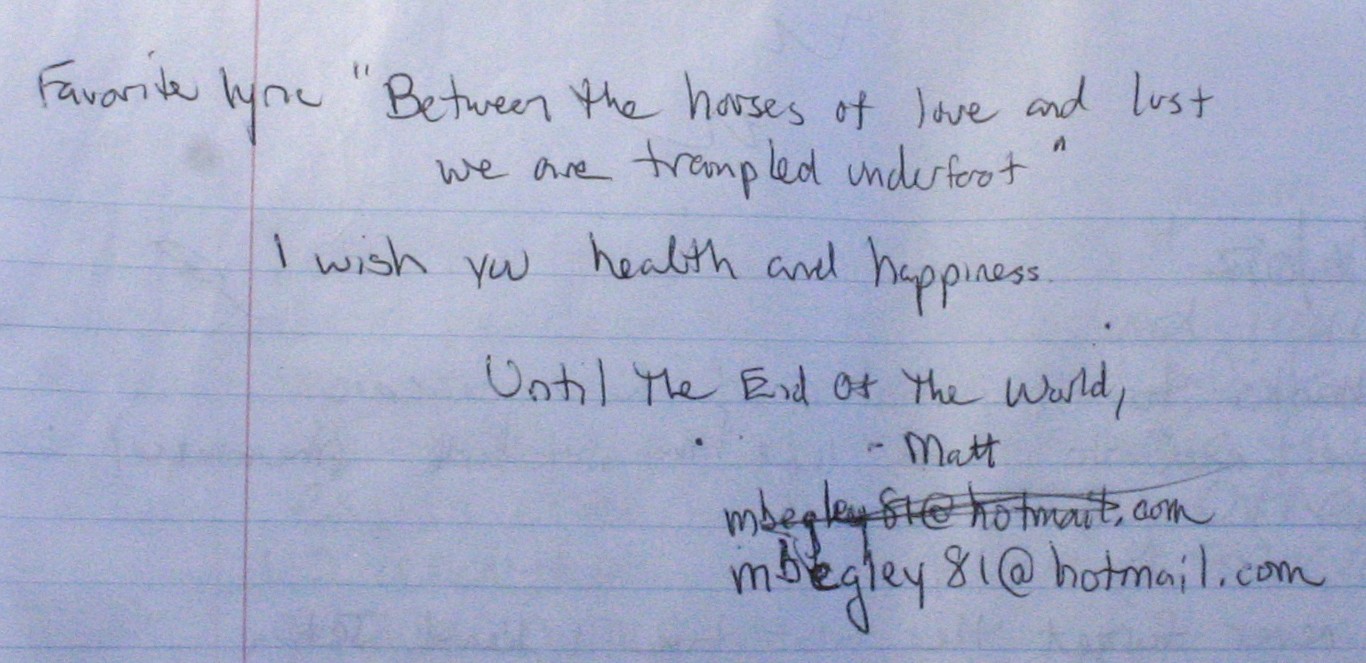 Favorite lyric "Between the horses of love and lust
we are trampled underfoot"
I wish you health and happiness.
Until The End Of The World,
- Matt
mbegley81@hotmail.com
mbegley81@hotmail.com